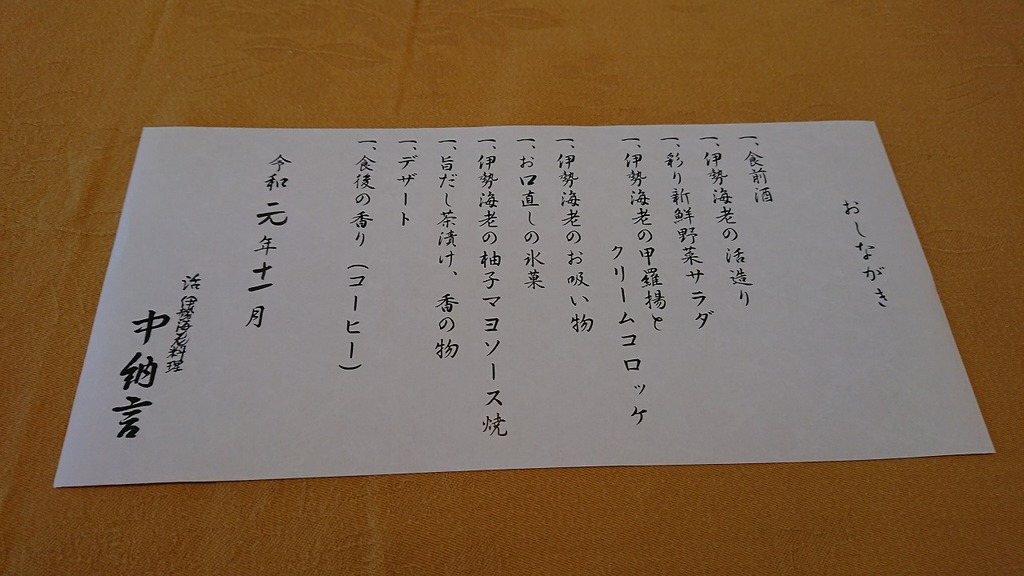 おしながき
一、食前酒
一、伊勢海老の活造り
一、彩り新鮮野菜サラダ
一、伊勢海老の甲羅揚と
クリームコロッケ
一、伊勢海老のお吸い物
一、お口直しの氷菓
一、伊勢海老の柚子マヨソース焼
一、旨だし茶漬け、香の物
一、デザート
一、食後の香り（コーヒー）
令和元年十一月
活伊勢海老料理
中納言